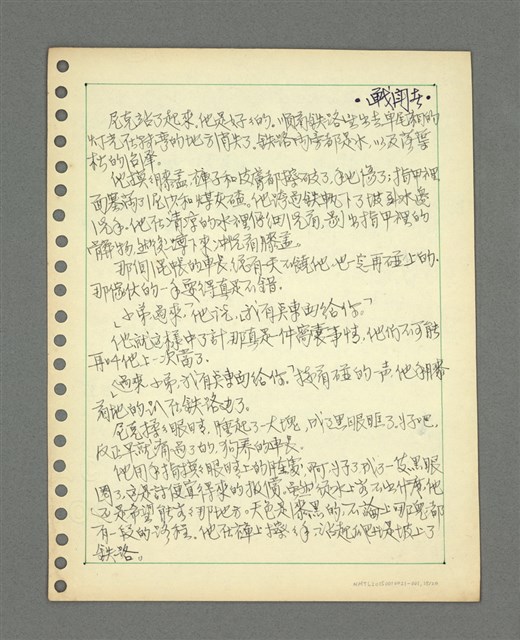 ·戰鬥者·
尼克站了起來,他是好好的,順著鐵路望出去車尾廂的
灯光在轉彎的地方消失了,鐵路兩旁都是水,以及落葉
松的
他摸摸膝蓋,褲子和皮膚都擦破了,手也擦了;指甲裡
面塞滿了泥沙和煤灰碴。他跨過鐵軌下了坡到水邊
洗手,他在清凉的水裡仔細洗着,剔出指甲裡的
髒物,然後蹲下來,沖洗着膝蓋。
那個混帳的車長,總有一天不饒他,也一定再碰上的,
那傢伙的一手耍得真是不錯,
「小弟過來」他說,「我有点東西給你。」
他就這樣中了計,那真是件窩囊事情,他們不可能
再叫他上一次當了,
「過來,小弟,我有点東西給你,」接着碰的一声他手脚
着地的趴在鐵路边了。
尼克揉揉眼睛,腫起了一大塊,成了黑眼眶了,好吧,
反正早就有過了的,狗养的車長。
他用手指摸摸眼睛上的腫,啊,好了,成了一隻黑眼
圈了,這是討便宜得來的報償,
還是希望能看到那地方。天色是漆黑的,不論上那兒都
有一段的路程,他在褲上擦擦手,站起爬上堤坡上了
鐵路。